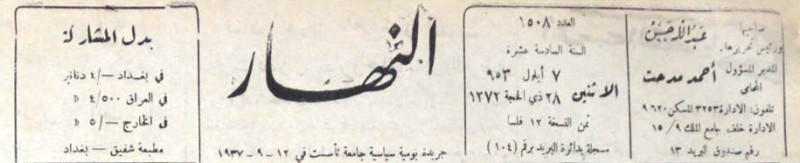 صاحبها
ورئيس تحريرها
عبد الله حسن
المدير المسؤول
أحمد مدحت
المحامي
تلفون: الادارة ٣٢٥٣ المسكن ٩٦٢٠
الادارة خلف جامع الملك ٩/ ١٥
رقم صندوق البريد ١٣
العدد ١٥٠٨
السنة السادسة عشرة
الاثنين
٧ أيلول ٩٥٣
٢٨ ذي الحجة ١٢٧٢
ثمن النسخة ١٢ فلسا
مسجلة بدائرة البريد برقم (١٠٤)
النهار
جريدة يومية سياسية جامعة تأسست في ١٢-٩-١٩٣٧
بدل المشاركة
في بغداد -/٤ دنانير
في العراق ٤/٥٠٠ »
في الخارج -/٥ »
مطبعة شفيق - بغداد